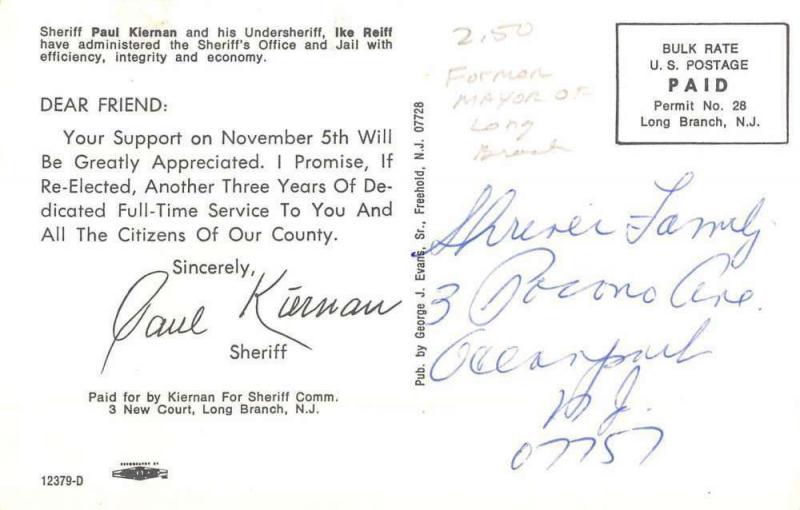 Sheriff Paul Kiernan and his Undersheriff, Ike Reiff
have administered the Sheriff's Office and Jail with
efficiency, integrity and economy.
DEAR FRIEND:
Your Support on November 5th Will
Be Greatly Appreciated. I Promise, If
Re-Elected, Another Three Years Of De-
dicated Full-Time Service To You And
All The Citizens Of Our County.
Sincerely,
Paul Kiernan
Sheriff
Paid for by Kiernan For Sheriff Comm.
3 New Court, Long Branch, N.J.
12379-D
Pub. by George J. Evans, Sr., Freehold, N.J. 07728
2.50
Former
MAYOR OF
Long
Branch
BULK RATE
U. S. POSTAGE
PAID
Permit No. 28
Long Branch, N.J.
Shriver Family
3 Pocono Ave.
Oceanport
N.J.
07757